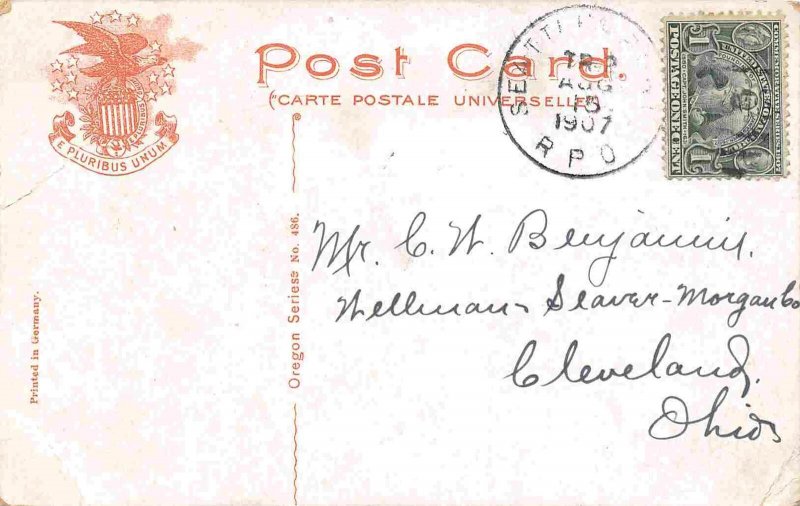 Post Card.
("CARTE POSTALE UNIVERSELLE")
E PLURIBUS UNUM
SEATTLE
TR 2
AUG
15
1907
R P O
POSTAGE ONE CENT
1 1
Mr. C. W. Benjamin,
Wellman-Seaver-Morgan Co
Cleveland,
Ohio
Oregon Seriess No. 486.
Printed in Germany.